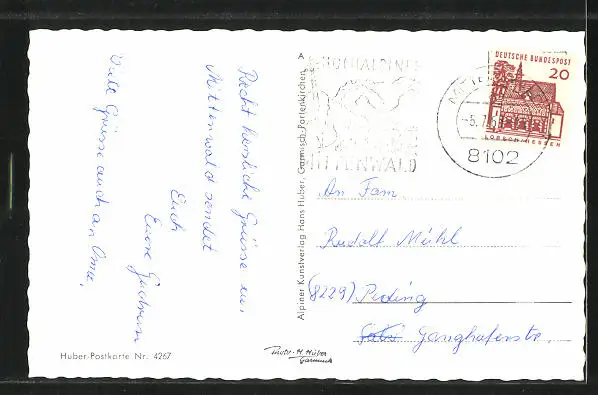 Recht herzliche Grüsse aus
Mittenwald sendet
Euch
Eure Gudrun
Viele Grüsse auch an Oma.
Huber-Postkarte Nr. 4267
Photo-H. Huber
Garmisch
A
Alpiner Kunstverlag Hans Huber, Garmisch-Partenkirchen
HOCHALPINER
MITTENWALD
-5.7.
8102
DEUTSCHE BUNDESPOST
20
LORSCH/HESSEN
An Fam
Rudolf Mühl
(8229) Piding
Ganghoferstr.